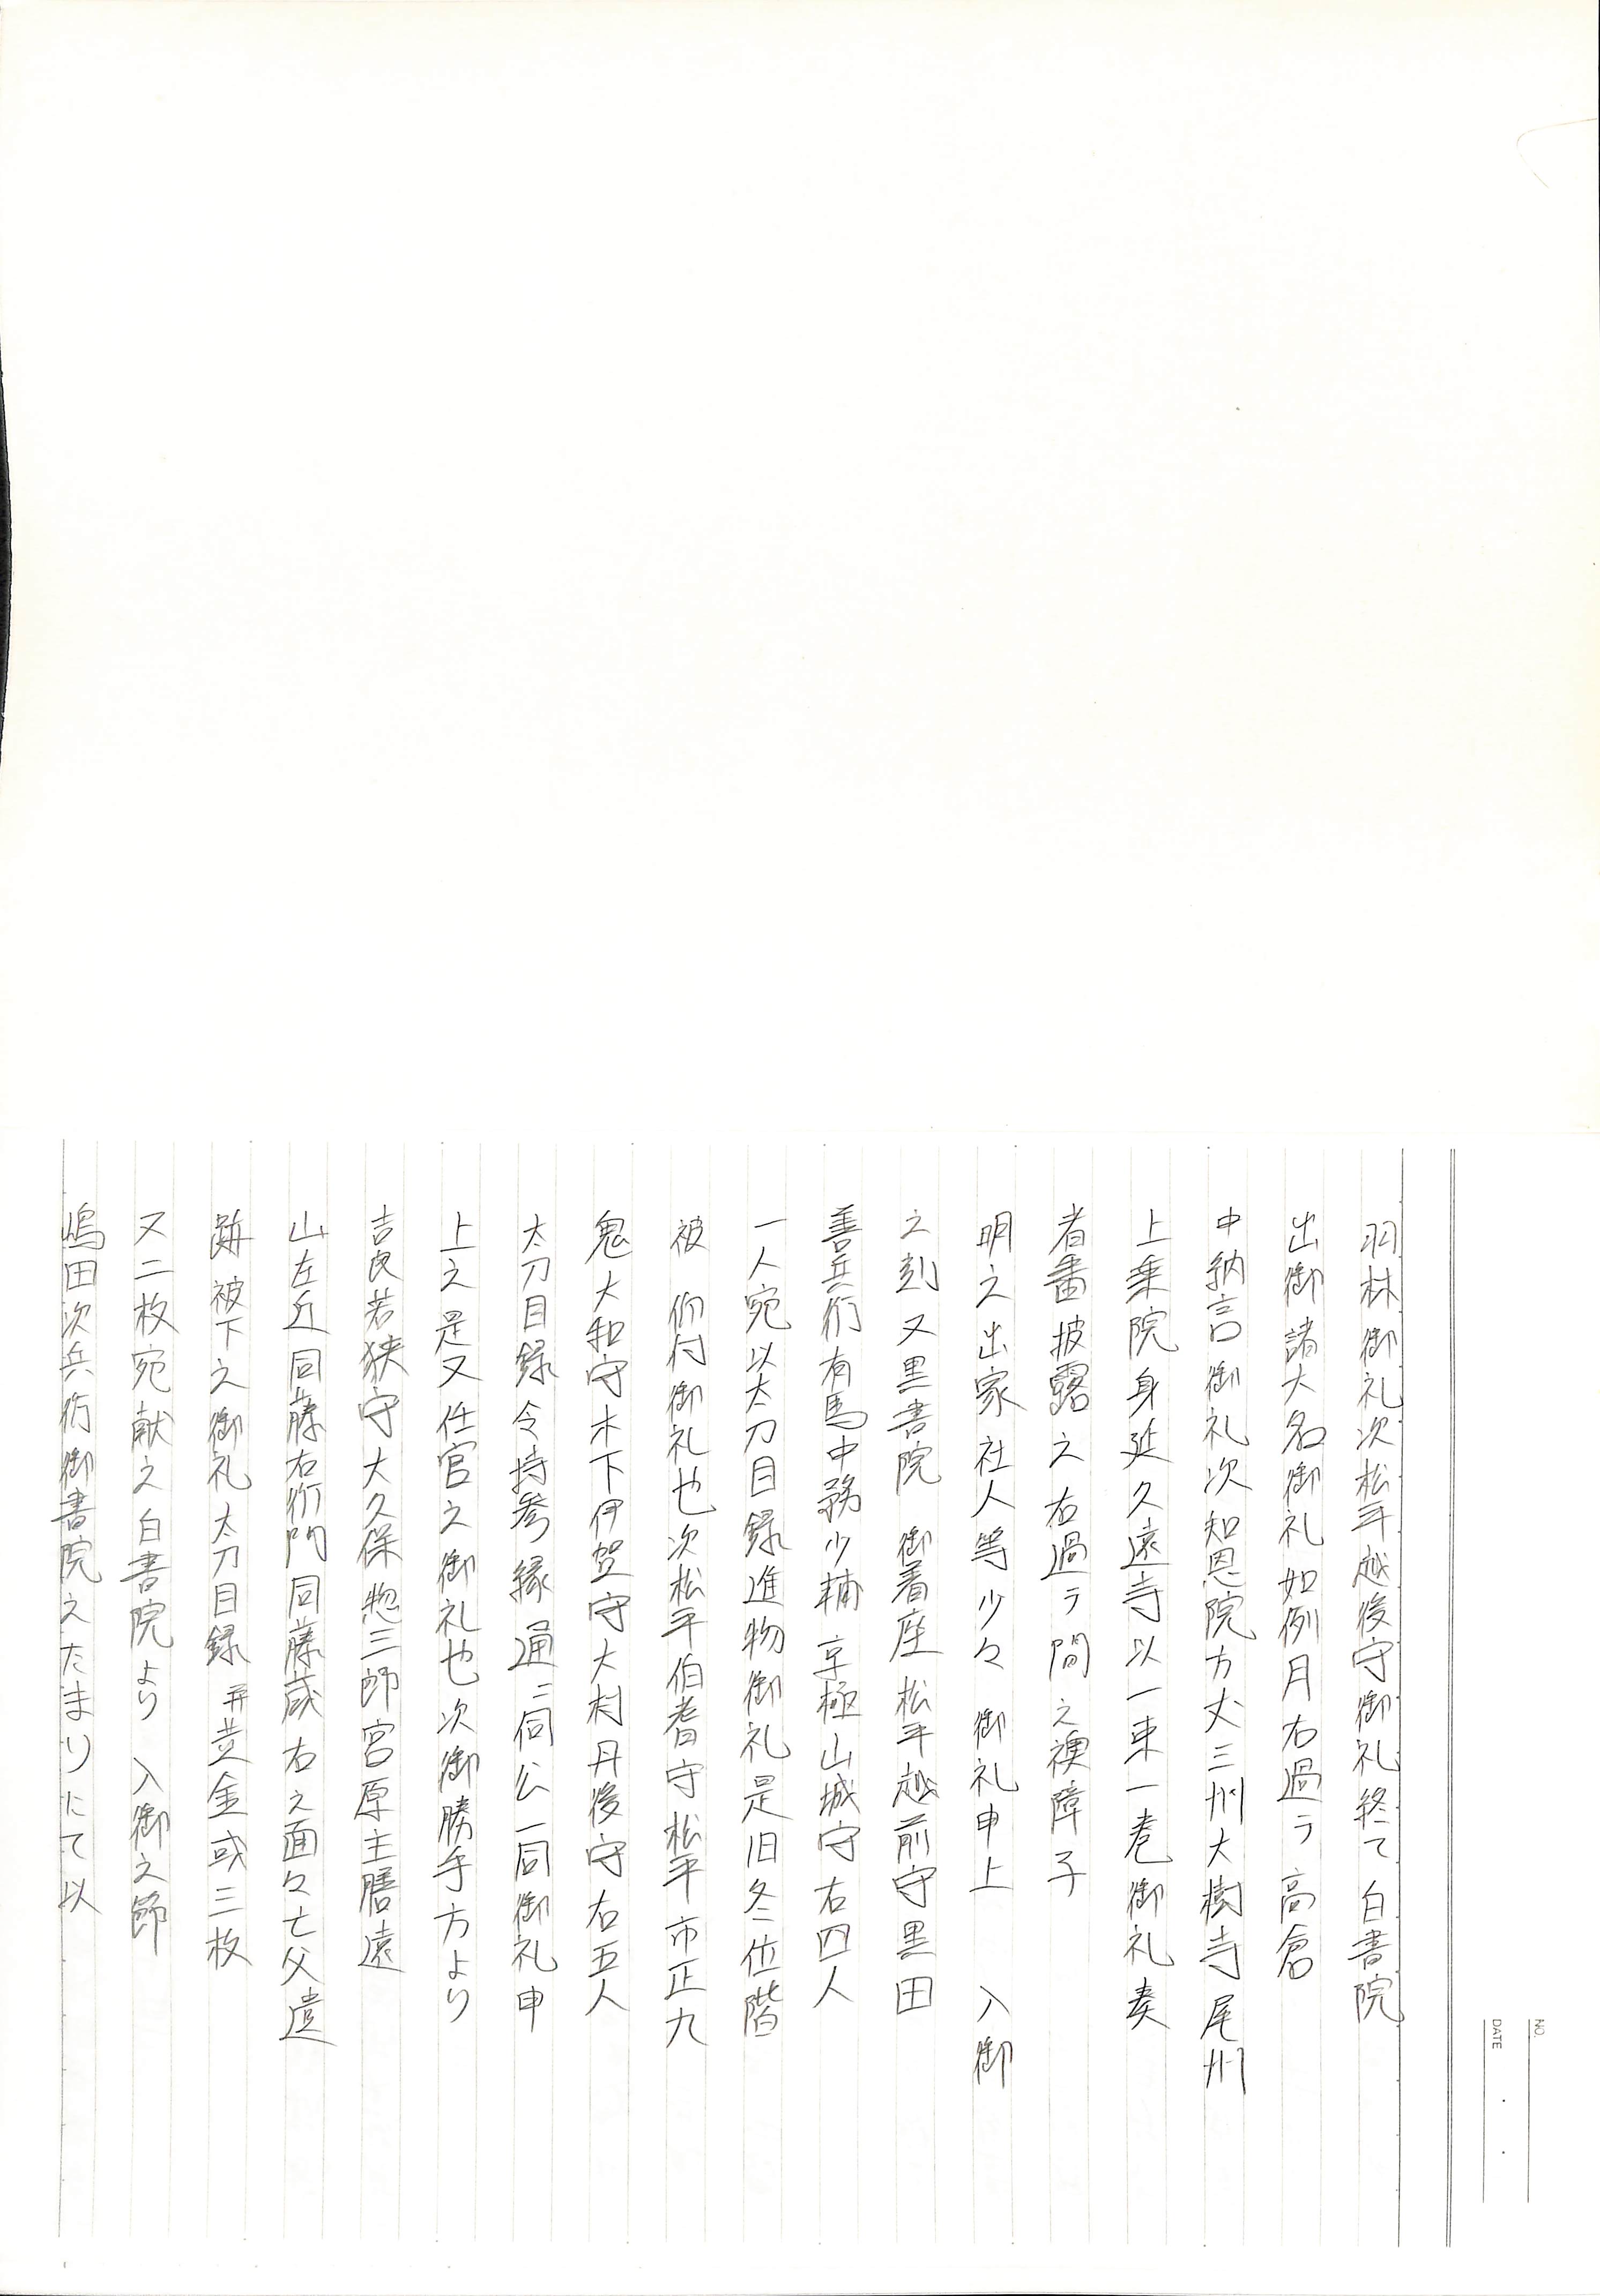 羽林御礼次松平越後守御礼終て 白書院
出御諸大名御礼如例月右過ラ高倉
中納言御礼次知恩院方丈三州大樹寺尾州
上乗院身延久遠寺以一束一巻御礼奏
者番披露之右過ラ間之襖障子
明之出家社人等少々御礼申上 入御
之刻又黒書院 御着座松平越前守黒田
善兵衛有馬中務少輔京極山城守右四人
一人宛以太刀目録進物御礼是旧冬位階
被 仰付御礼也次松平伯耆守松平市正九
鬼大和守木下伊賀守大村丹後守右五人
太刀目録令持参縁通ニ伺公一同御礼申
上之是又任官之御礼也次御勝手方より
吉良若狭守大久保惣三郎宮原主膳遠
山左近同藤右衛門同藤蔵右之面々亡父遺
跡被下之御礼太刀目録并黄金或三枚
又二枚宛献之白書院より 入御之節
嶋田次兵衛御書院之たまりにて以
NO.
DATE ・ ・